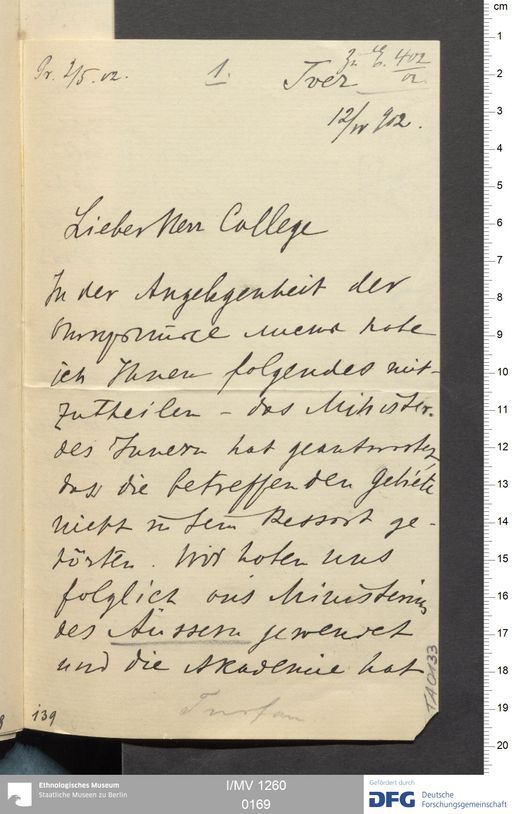 Pr. 2/5. 02.
1.
Zu E. 402/02.
Tver
12/IV 902.
Lieber Herr College
In der Angelegenheit der
habe
ich Ihnen folgendes mit-
zutheilen – das Minister.
des Innern hat geantwortet,
dass die betreffenden Gebiete
nicht zu sein Ressort ge-
hörten. Wir haben uns
folglich ans Ministerium
des Äussern gewendet
und die Akademie hat
Turfan
139
TA 0133
cm
1
2
3
4
5
6
7
8
9
10
11
12
13
14
15
16
17
18
19
20
Ethnologisches Museum
Staatliche Museen zu Berlin
I/MV 1260
0169
Gefördert durch
DFG
Deutsche
Forschungsgemeinschaft